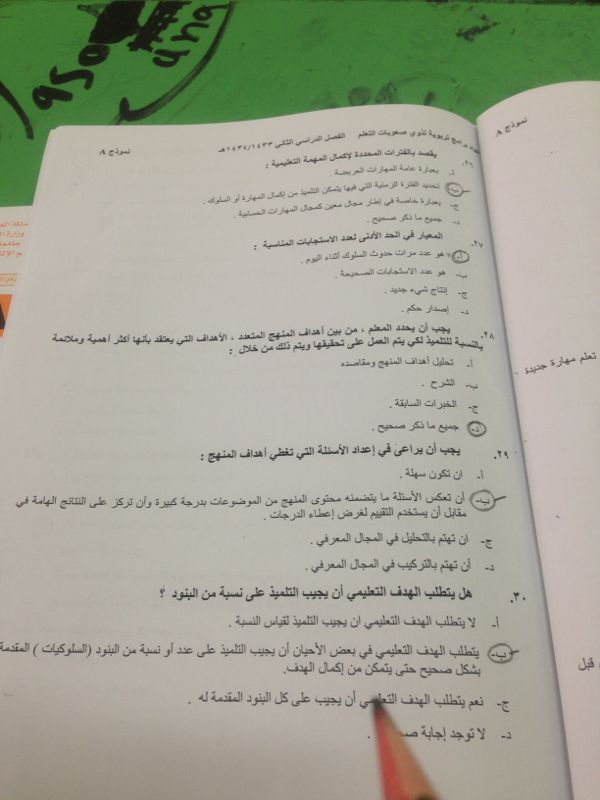 950
ung
برامج تربوية لذوي صعوبات التعلم الفصل الدراسي الثاني ١٤٣٤/١٤٣٣هـ نموذج A
٢٦. يقصد بالفترات المحددة لإكمال المهمة التعليمية :
أ- بعبارة عامة المهارات العريضة .
ب- تحديد الفترة الزمنية التي فيها يتمكن التلميذ من إكمال المهارة أو السلوك .
ج- بعبارة خاصة في إطار مجال معين كمجال المهارات الحسابية .
د- جميع ما ذكر صحيح .
٢٧. المعيار في الحد الأدنى لعدد الاستجابات المناسبة :
أ- هو عدد مرات حدوث السلوك أثناء اليوم .
ب- هو عدد الاستجابات الصحيحة .
ج- إنتاج شيء جديد .
د- إصدار حكم .
٢٨. يجب أن يحدد المعلم ، من بين أهداف المنهج المتعدد ، الأهداف التي يعتقد بأنها أكثر أهمية وملائمة
بالنسبة للتلميذ لكي يتم العمل على تحقيقها ويتم ذلك من خلال :
أ- تحليل أهداف المنهج ومقاصده
ب- الشرح .
ج- الخبرات السابقة .
د- جميع ما ذكر صحيح .
٢٩. يجب أن يراعى في إعداد الأسئلة التي تغطي أهداف المنهج :
أ- ان تكون سهلة .
ب- أن تعكس الأسئلة ما يتضمنه محتوى المنهج من الموضوعات بدرجة كبيرة وأن تركز على النتائج الهامة في
مقابل أن يستخدم التقييم لغرض إعطاء الدرجات .
ج- ان تهتم بالتحليل في المجال المعرفي .
د- أن تهتم بالتركيب في المجال المعرفي .
٣٠. هل يتطلب الهدف التعليمي أن يجيب التلميذ على نسبة من البنود ؟
أ- لا يتطلب الهدف التعليمي ان يجيب التلميذ لقياس النسبة .
ب- يتطلب الهدف التعليمي في بعض الأحيان أن يجيب التلميذ على عدد أو نسبة من البنود (السلوكيات ) المقدمة
بشكل صحيح حتى يتمكن من إكمال الهدف.
ج- نعم يتطلب الهدف التعليمي أن يجيب على كل البنود المقدمة له .
د- لا توجد إجابة
نموذج A
تعلم مهارة جديدة .
قبل